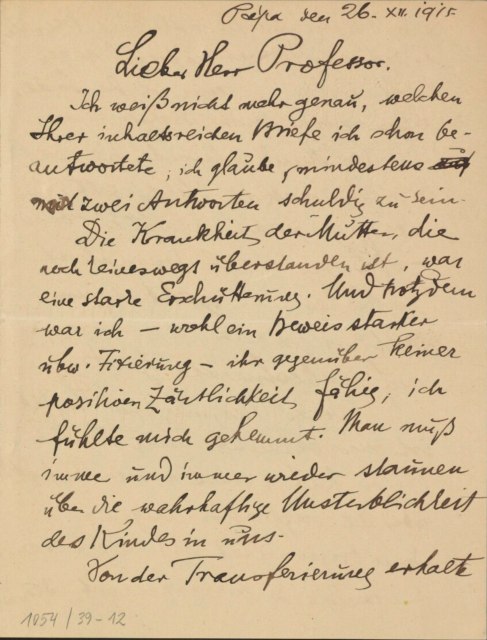 Pápa den 26. XII. 1915
Lieber Herr Professor.
Ich weiß nicht mehr genau, welchen
Ihrer inhaltsreichen Briefe ich schon be-
antwortete; ich glaube, mindestens
mit zwei Antworten schuldig zu sein.
Die Krankheit der Mutter, die
noch keineswegs überstanden ist, war
eine starke Erschütterung. Und trotzdem
war ich – wohl ein Beweis starker
ubw. Fixierung – ihr gegenüber keiner
positiven Zärtlichkeit fähig, ich
fühlte mich gehemmt. Man muß
immer und immer wieder staunen
über die wahrhaftige Unsterblichkeit
des Kindes in uns.
Von der Transferierung erhalte
1054/39-12